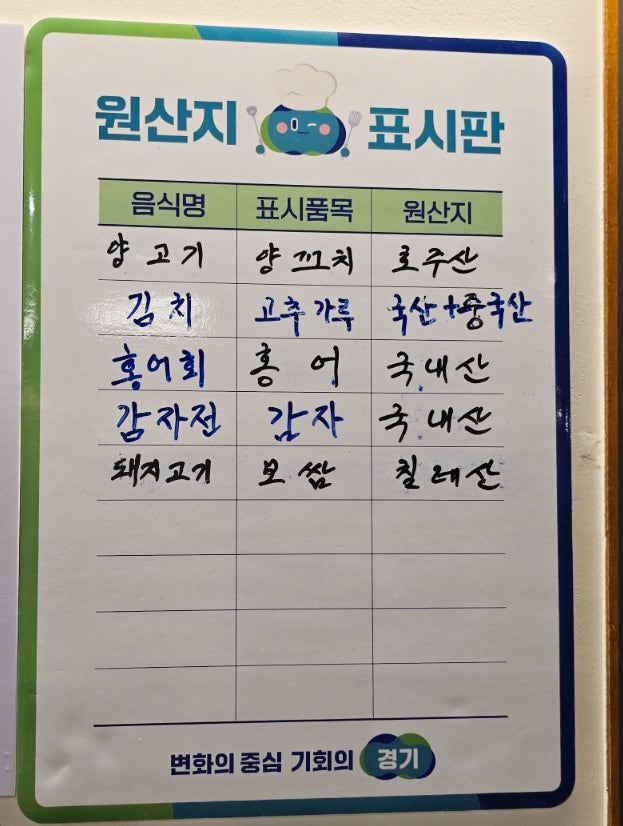 원산지 표시판
음식명 표시품목 원산지
양고기 양꼬치 호주산
김치 고추가루 국산+중국산
홍어회 홍어 국내산
감자전 감자 국내산
돼지고기 보쌈 칠레산
변화의 중심 기회의 경기